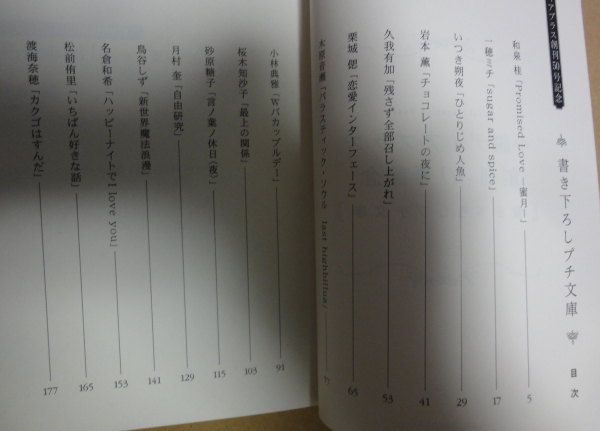 アプラス創刊50号記念
書き下ろしプチ文庫
目次
和泉 桂「Promised Love ―蜜月―」 5
一穂ミチ「sugar and spice」 17
いつき朔夜「ひとりじめ人魚」 29
岩本 薫「チョコレートの夜に」 41
久我有加「残さず全部召し上がれ」 53
栗城 偲「恋愛インターフェース」 65
木原音瀬「パラスティック・ソウル 77
小林典雅「Wバカップルデー」 91
桜木知沙子「最上の関係」 103
砂原糖子「言ノ葉ノ休日(夜)」 115
月村 奎「自由研究」 129
鳥谷しず「新世界魔法浪漫」 141
名倉和希「ハッピーナイトでI love you」 153
松前侑里「いちばん好きな話」 165
渡海奈穂「カクゴはすんだ」 177